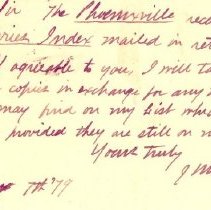 The Phoenixville rece
ries Index mailed in ret
agreeable to you, I will ta
copies in exchange for any
may find on my list whi
provided they are still on
Yours truly
J
7th '79